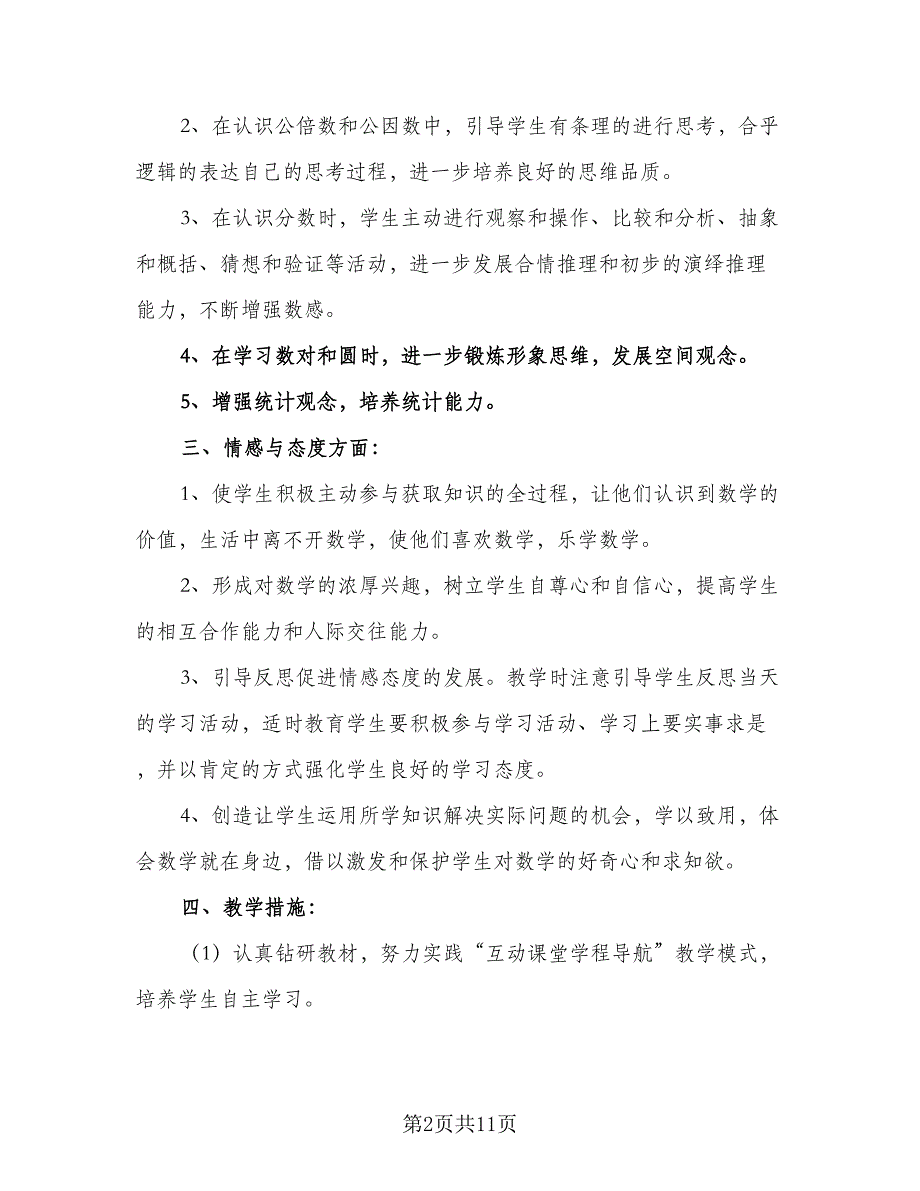 2、在认识公倍数和公因数中，引导学生有条理的进行思考，合乎
逻辑的表达自己的思考过程，进一步培养良好的思维品质。
3、在认识分数时，学生主动进行观察和操作、比较和分析、抽象
和概括、猜想和验证等活动，进一步发展合情推理和初步的演绎推理
能力，不断增强数感。
4、在学习数对和圆时，进一步锻炼形象思维，发展空间观念。
5、增强统计观念，培养统计能力。
三、情感与态度方面：
1、使学生积极主动参与获取知识的全过程，让他们认识到数学的
价值，生活中离不开数学，使他们喜欢数学，乐学数学。
2、形成对数学的浓厚兴趣，树立学生自尊心和自信心，提高学生
的相互合作能力和人际交往能力。
3、引导反思促进情感态度的发展。教学时注意引导学生反思当天
的学习活动，适时教育学生要积极参与学习活动、学习上要实事求是
，并以肯定的方式强化学生良好的学习态度。
4、创造让学生运用所学知识解决实际问题的机会，学以致用，体
会数学就在身边，借以激发和保护学生对数学的好奇心和求知欲。
四、教学措施：
（1）认真钻研教材，努力实践“互动课堂学程导航”教学模式，
培养学生自主学习。
第2页共11页